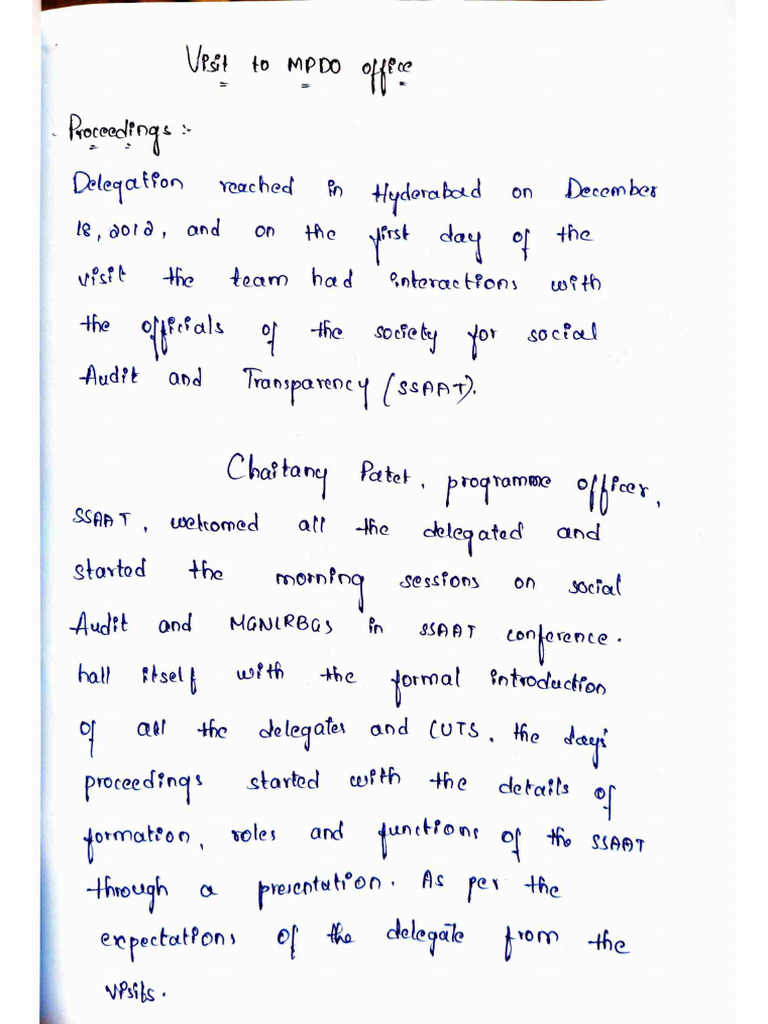 Visit to MPDO office
Proceedings :-
Delegation reached in Hyderabad on December
18, 2012, and on the first day of the
visit the team had interactions with
the officials of the society for social
Audit and Transparency (SSAAT).
Chaitany Patet, programme officer,
SSAAT, welcomed all the delegated and
started the morning sessions on social
Audit and MGNLRBGS in SSAAT conference.
hall itself with the formal introduction
of all the delegates and CUTS, the day's
proceedings started with the details of
formation, roles and functions of the SSAAT
through a presentation. As per the
expectations of the delegate from the
visits.